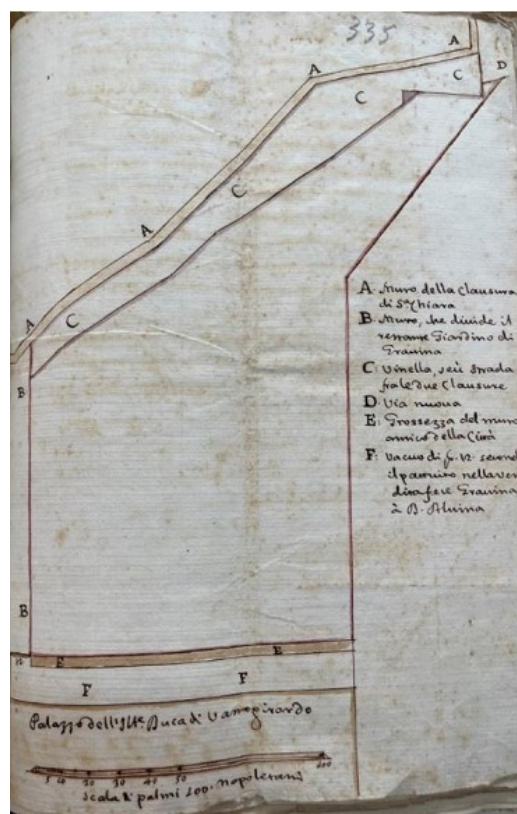 335
A
A
C
C
D
A
C
A
A
C
B
A. Muro della Clausura
di S.ta Chiara
B. Muro, che divide il
restante Giardino di
Gravina
C: Vinella, seù strada
fra le due Clausure
D. Via nuova
E: Grossezza del muro
antico della Città
F: Vacuo di p. 12. second
il pattuito nella ven
Gravina
à B. Aluina
B
E
E
F
F
Palazzo dell'Ill.e Duca di
5 10 20 30 40 50 100
Scala di palmi 100. napoletani